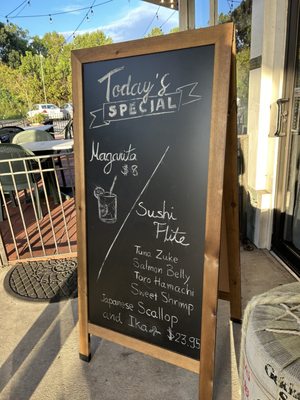 Today's
SPECIAL
Magarita
$8
Sushi
Flite
Tuna Zuke
Salmon Belly
Toro Hamachi
Sweet Shrimp
Japanese Scallop
and Ika
$23.95